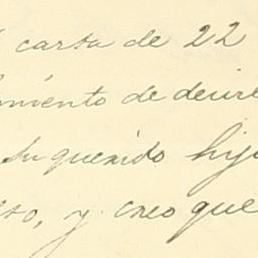 carta de 22
de decirl
su querido hijo
eso, y creo que